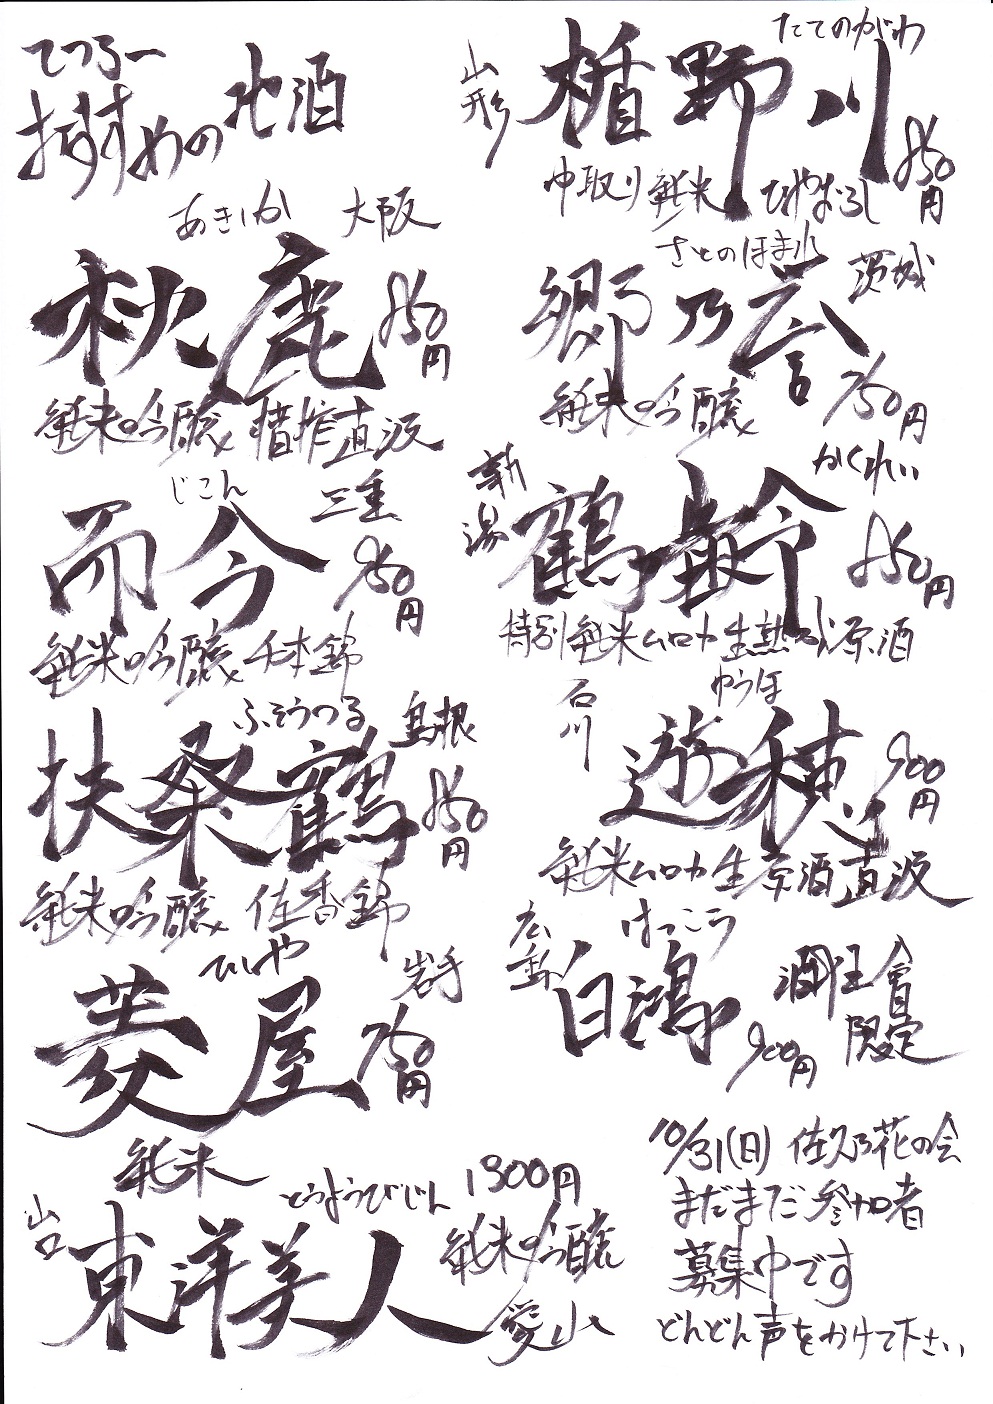 てつろー
おすすめの地酒
あきしか 大阪
秋鹿 850円
純米吟醸 槽搾直汲
じこん 三重
而今 950円
純米吟醸 千本錦
ふそうつる 島根
扶桑鶴 850円
純米吟醸 佐香錦
ひしや 岩手
菱屋 750円
純米
山口 とうようびじん 1300円
東洋美人 純米吟醸
愛山
山形 たてのがわ
楯野川 850円
中取り純米 ひやおろし
さとのほまれ 茨城
郷乃誉 750円
純米吟醸
新潟 かくれい
鶴齢 850円
特別純米ムロカ生熟成原酒
石川 ゆうほ
遊穂 900円
純米ムロカ生原酒直汲
広島 はっこう
白鴻 900円
會限定
10/31(日) 佐久乃花の会
まだまだ参加者
募集中です
どんどん声をかけて下さい